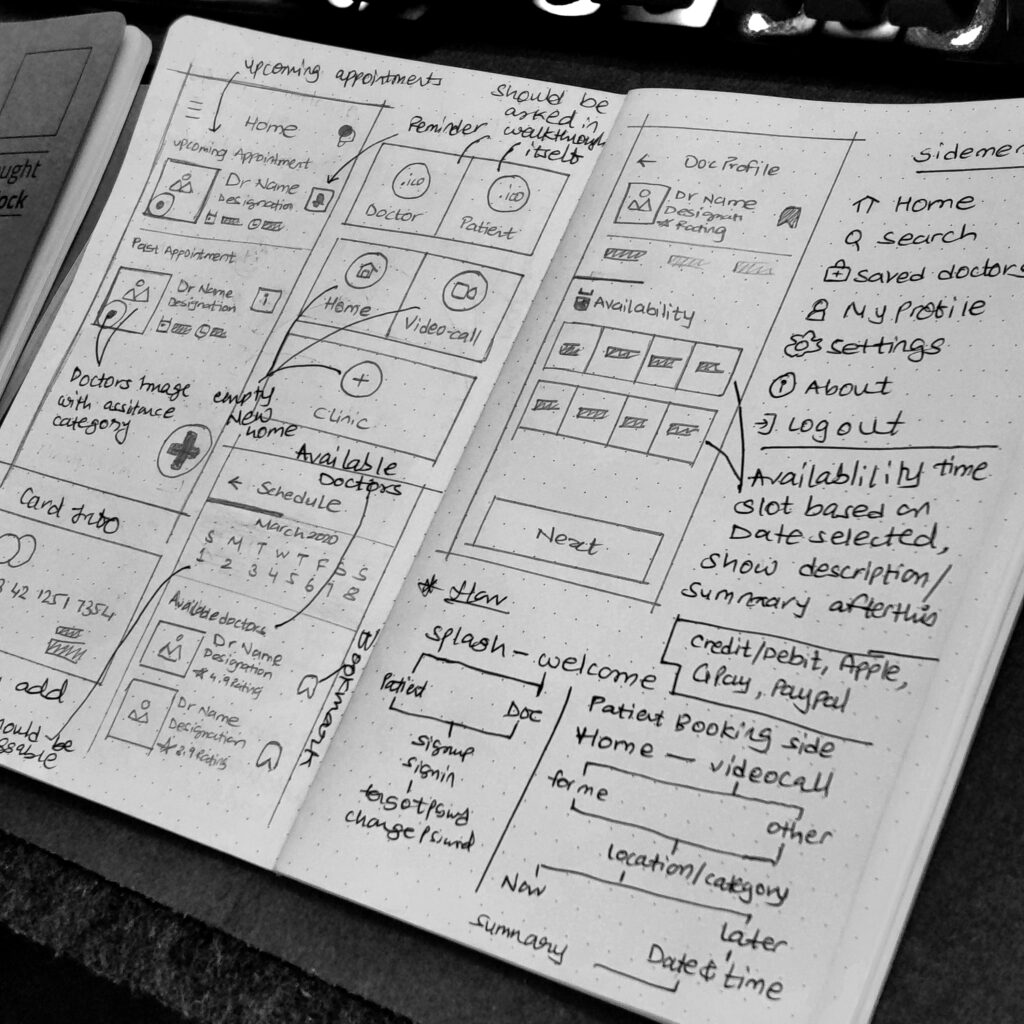 ught
ock
upcoming appointments
Home
upcoming Appointment
Dr Name
Designation
Past Appointment
Dr Name
Designation
Doctors Image
with assitance
category
Reminder
should be
asked in
walkthrough
itself
.ico
Doctor
.ico
Patient
Home
Video-call
Clinic
empty
New
home
Card Info
3 42 1251 7354
add
ould be
Available
Doctors
Schedule
March 2020
S M T W T F S S
1 2 3 4 5 6 7 8
Available doctors
Dr. Name
Designation
4.9 Rating
Dr Name
Designation
Rating
Bookmark
Doc Profile
Dr Name
Designati
Rating
Availability
Next
sidemen
Home
search
saved doctors
My Profile
settings
About
Logout
Availablility time
slot based on
Date selected,
show description/
summary after this
credit/Debit, Apple,
GPay, Paypal
* Flow
splash - welcome
Patient
Doc
signup
signin
change
Patient Booking side
Home — videocall
for me
other
location/category
Now
later
summary
Date & time